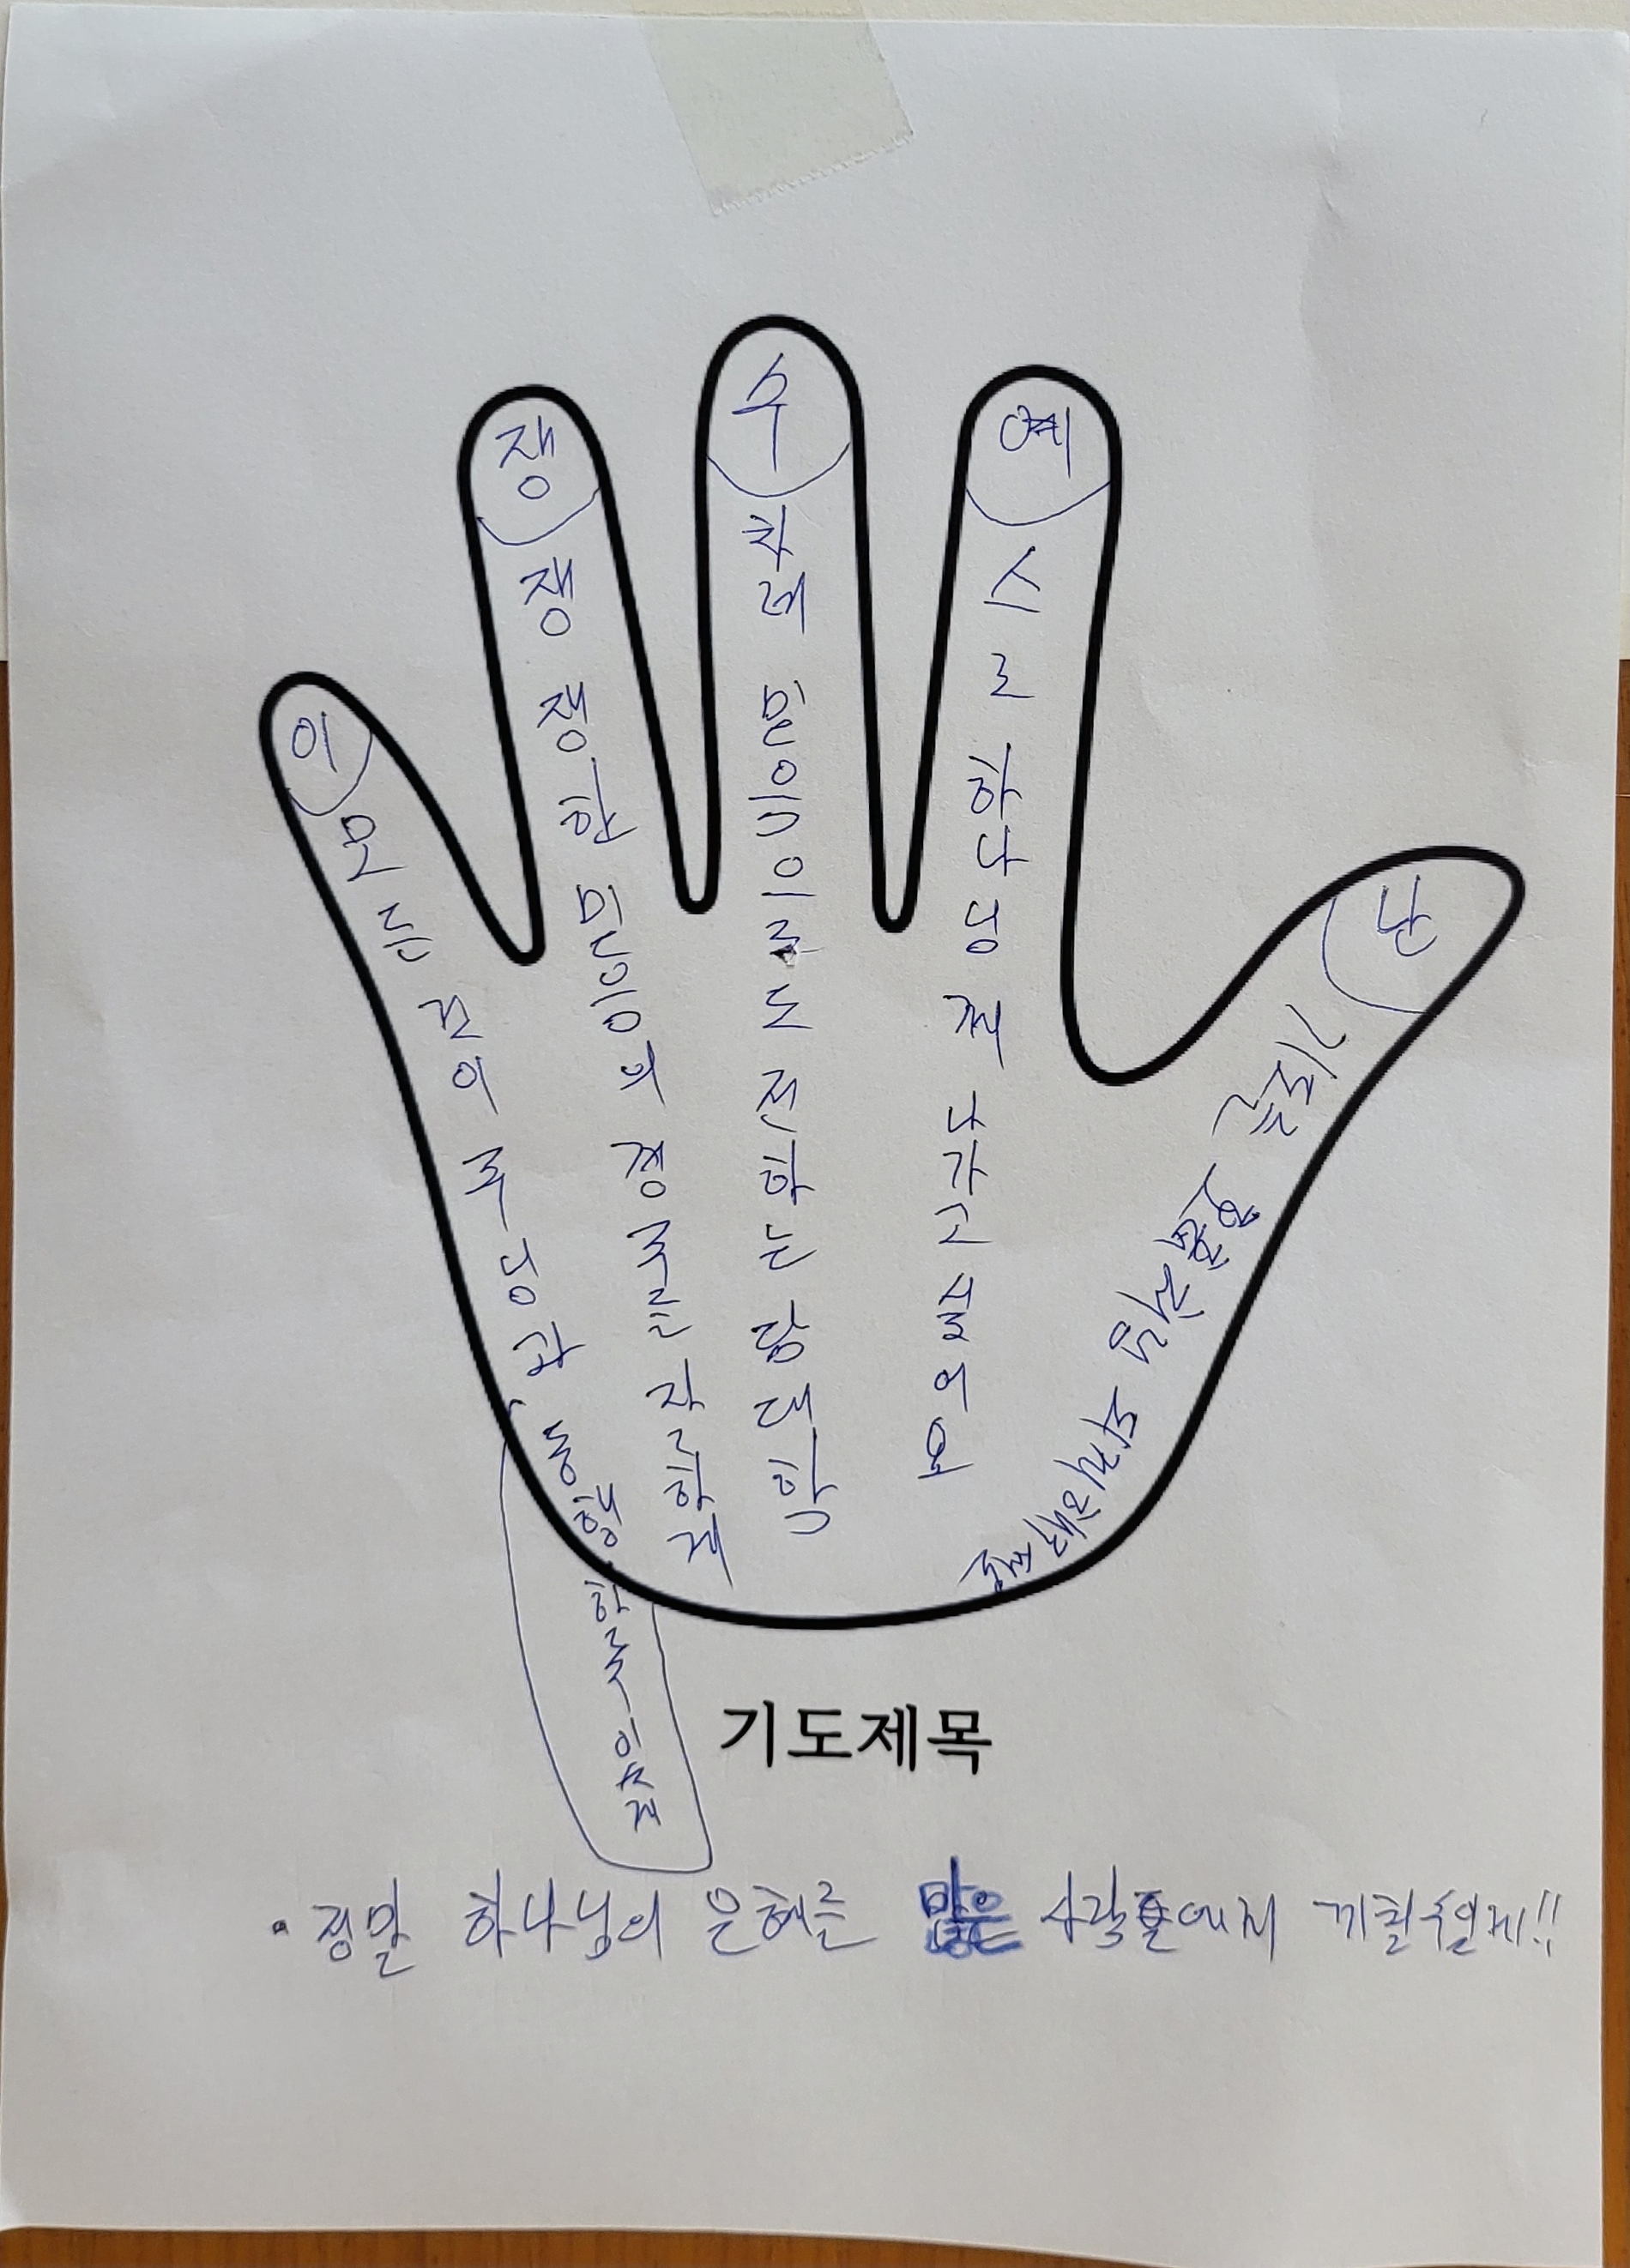 이
모든 것이 주님과 동행 할 수 있게
쟁
쟁쟁한 믿음의 경주를 잘 할게
수
차례 믿음으로 도전하는 담대함
예
스로 하나님께 나가고 싶어요
난
기도제목
· 정말 하나님의 은혜를 많은 사람들에게 끼칠 수 있게!!